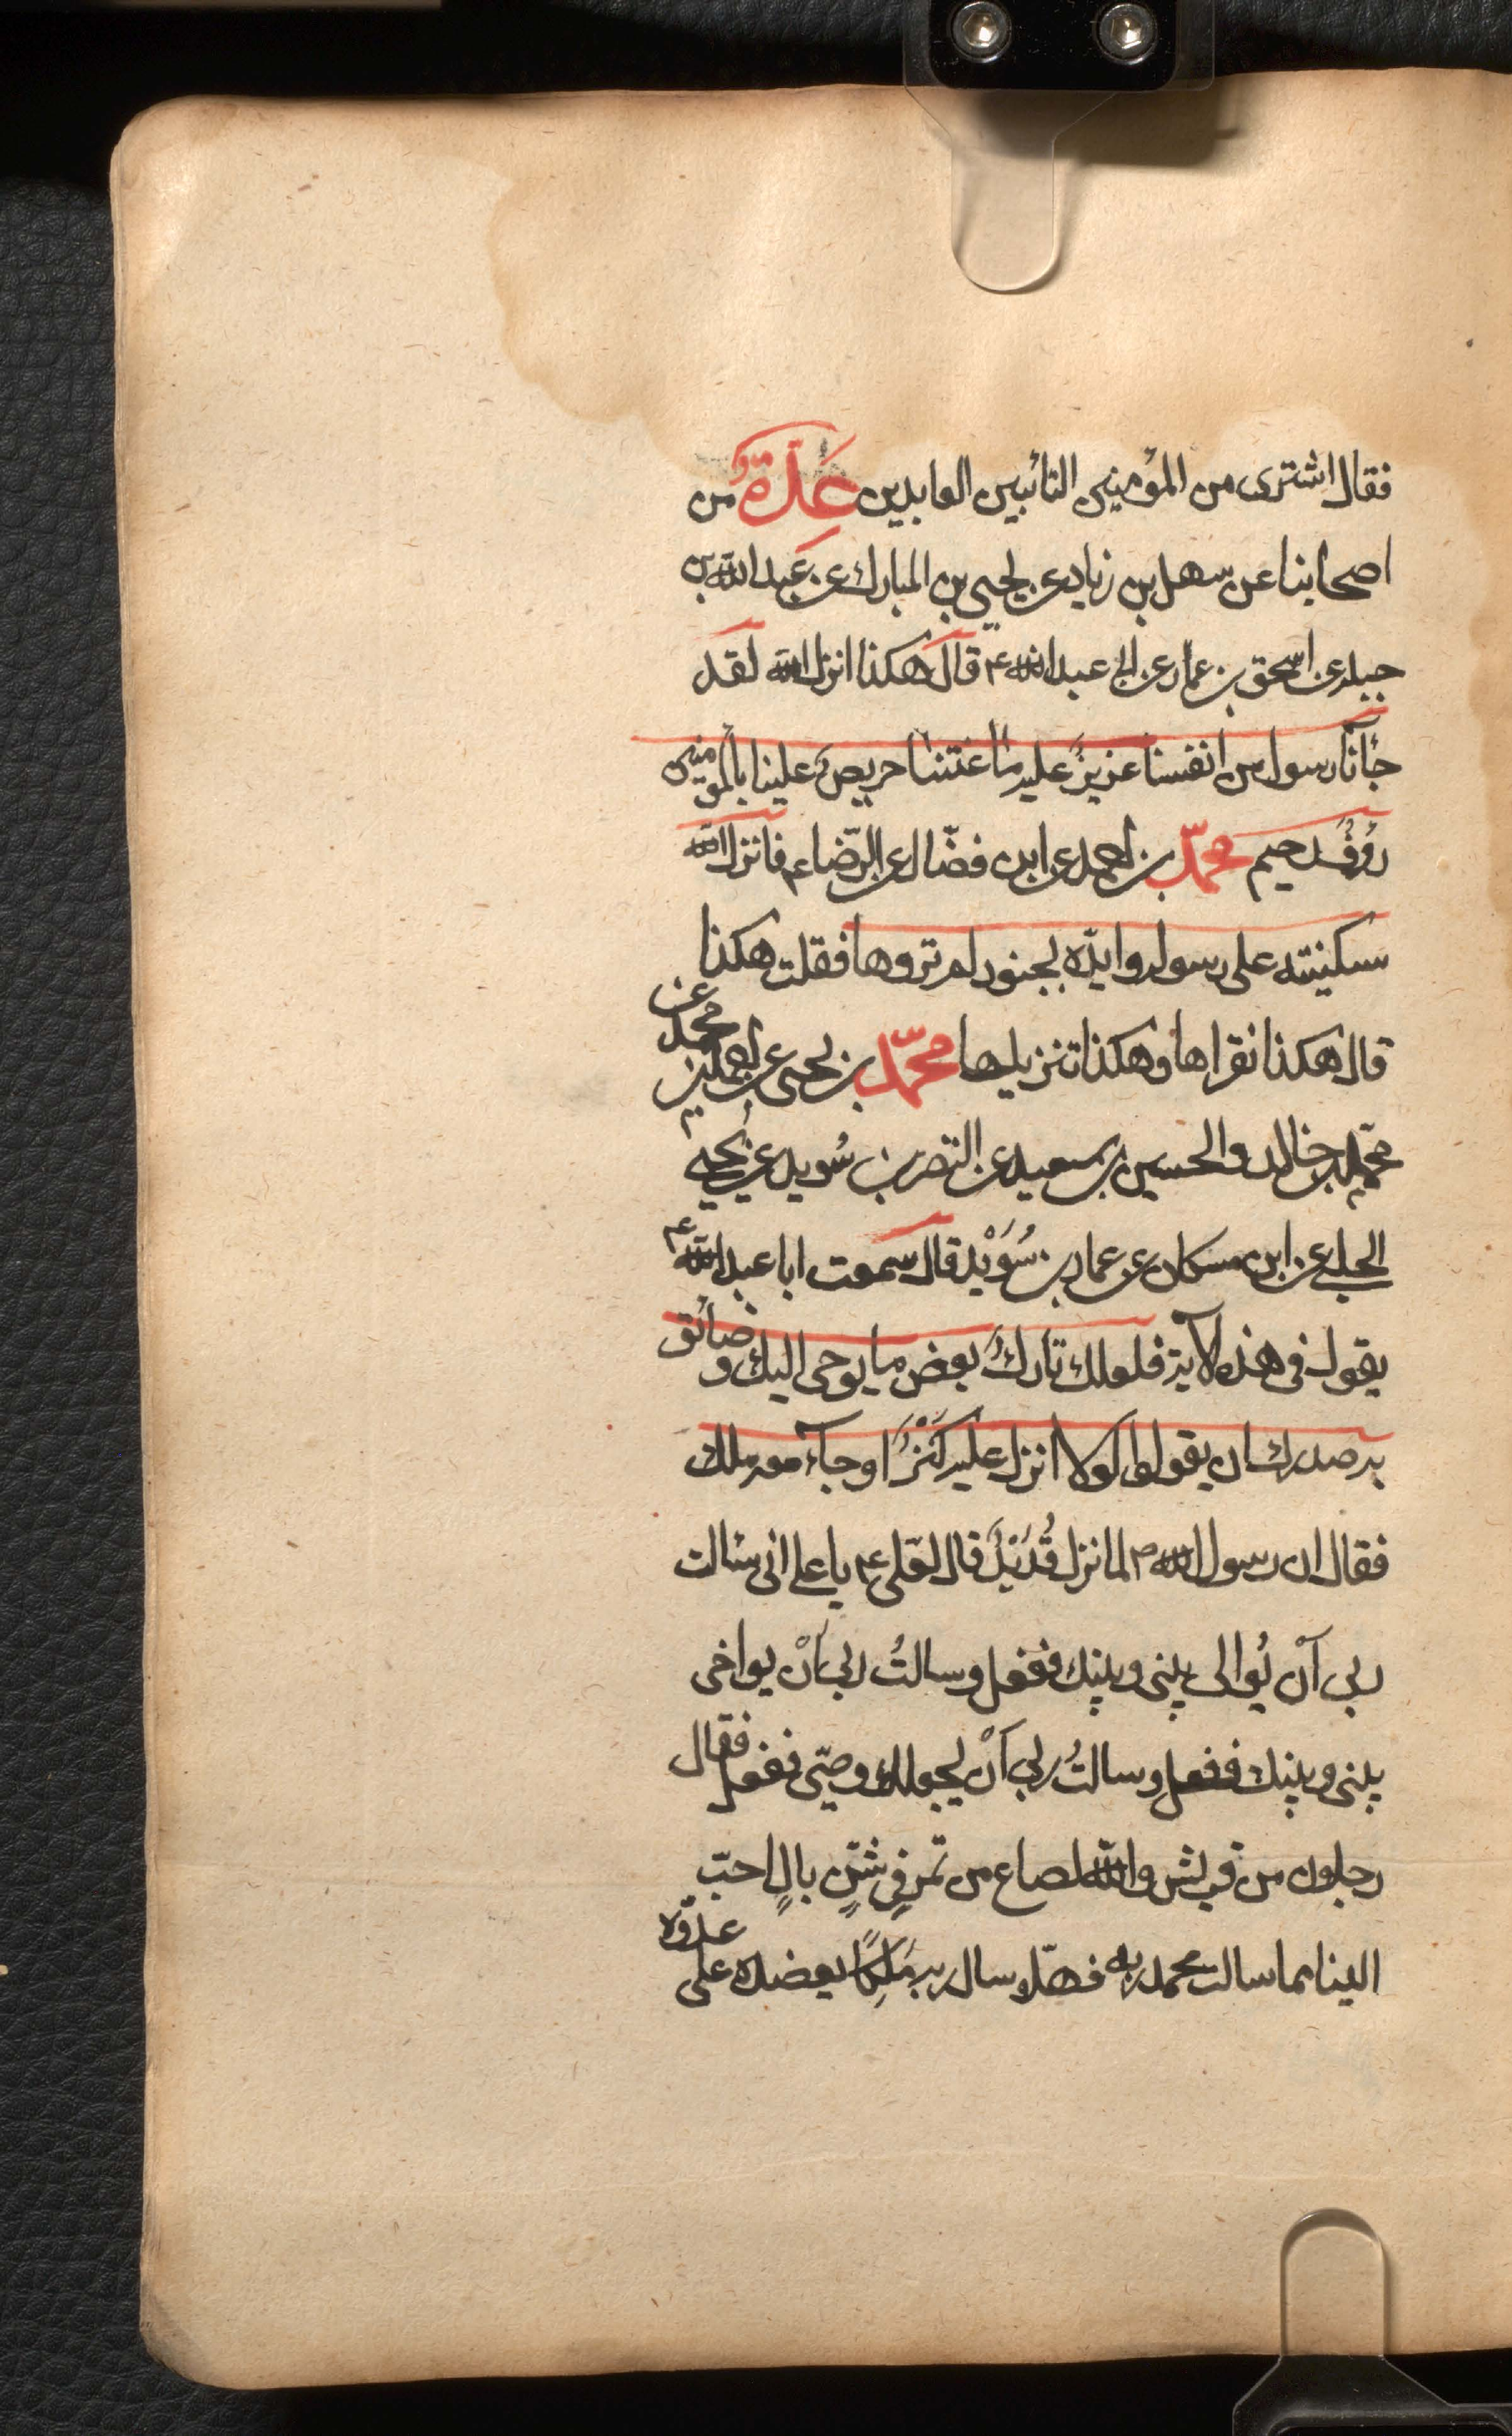 فقال اشترى من المؤمنين التائبين العابدين عِدَّةٌ من
اصحابنا عن سهل بن زياد عن يحيى بن المبارك عن عبد الله بن
جبله عن اسحق بن عمار عن ابى عبد الله ع قال هكذا انزل الله لقد
جآئنا رسول من انفسنا عزيزٌ عليه ما عنتنا حريصٌ علينا بالمؤمنين
رؤفٌ رحيم محمّد بن احمد عن ابن فضّال عن الرّضا ع فانزل الله
سكينته على رسوله وايّده بجنود لم تروها فقلت هكذا
قال هكذا نقراها وهكذا تنزيلها محمّد بن يحيى عن احمد بن محمد عن
محمّد بن خالد والحسين بن سعيد عن النضر بن سُويد عن يحيى
الحلبى عن ابن مسكان عن عمار بن سُوَيْد قال سمعت ابا عبد الله ع
يقول فى هذه الآية فلعلك تاركٌ بعض ما يوحى اليك و ضائق
به صدرك ان يقولوا لولا انزل عليه كَنْزٌ او جآء معه ملك
فقال ان رسول الله ص لما نزل قُدَيْدَ قال لعلى ع يا على انى سئالت
ربى اَنْ يُوالى بينى وبينك ففعل وسالتُ ربى اَنْ يواخى
بينى وبينك ففعل وسالتُ ربى اَنْ يجعلك وصيّى ففعل فقال
رجلان من قريش والله لصاع من تمرٍ فى شنٍّ بالٍ احبّ
الينا مما سالت محمد ربه فهلّا سال ربه مَلِكًا يعضده على عدوّه